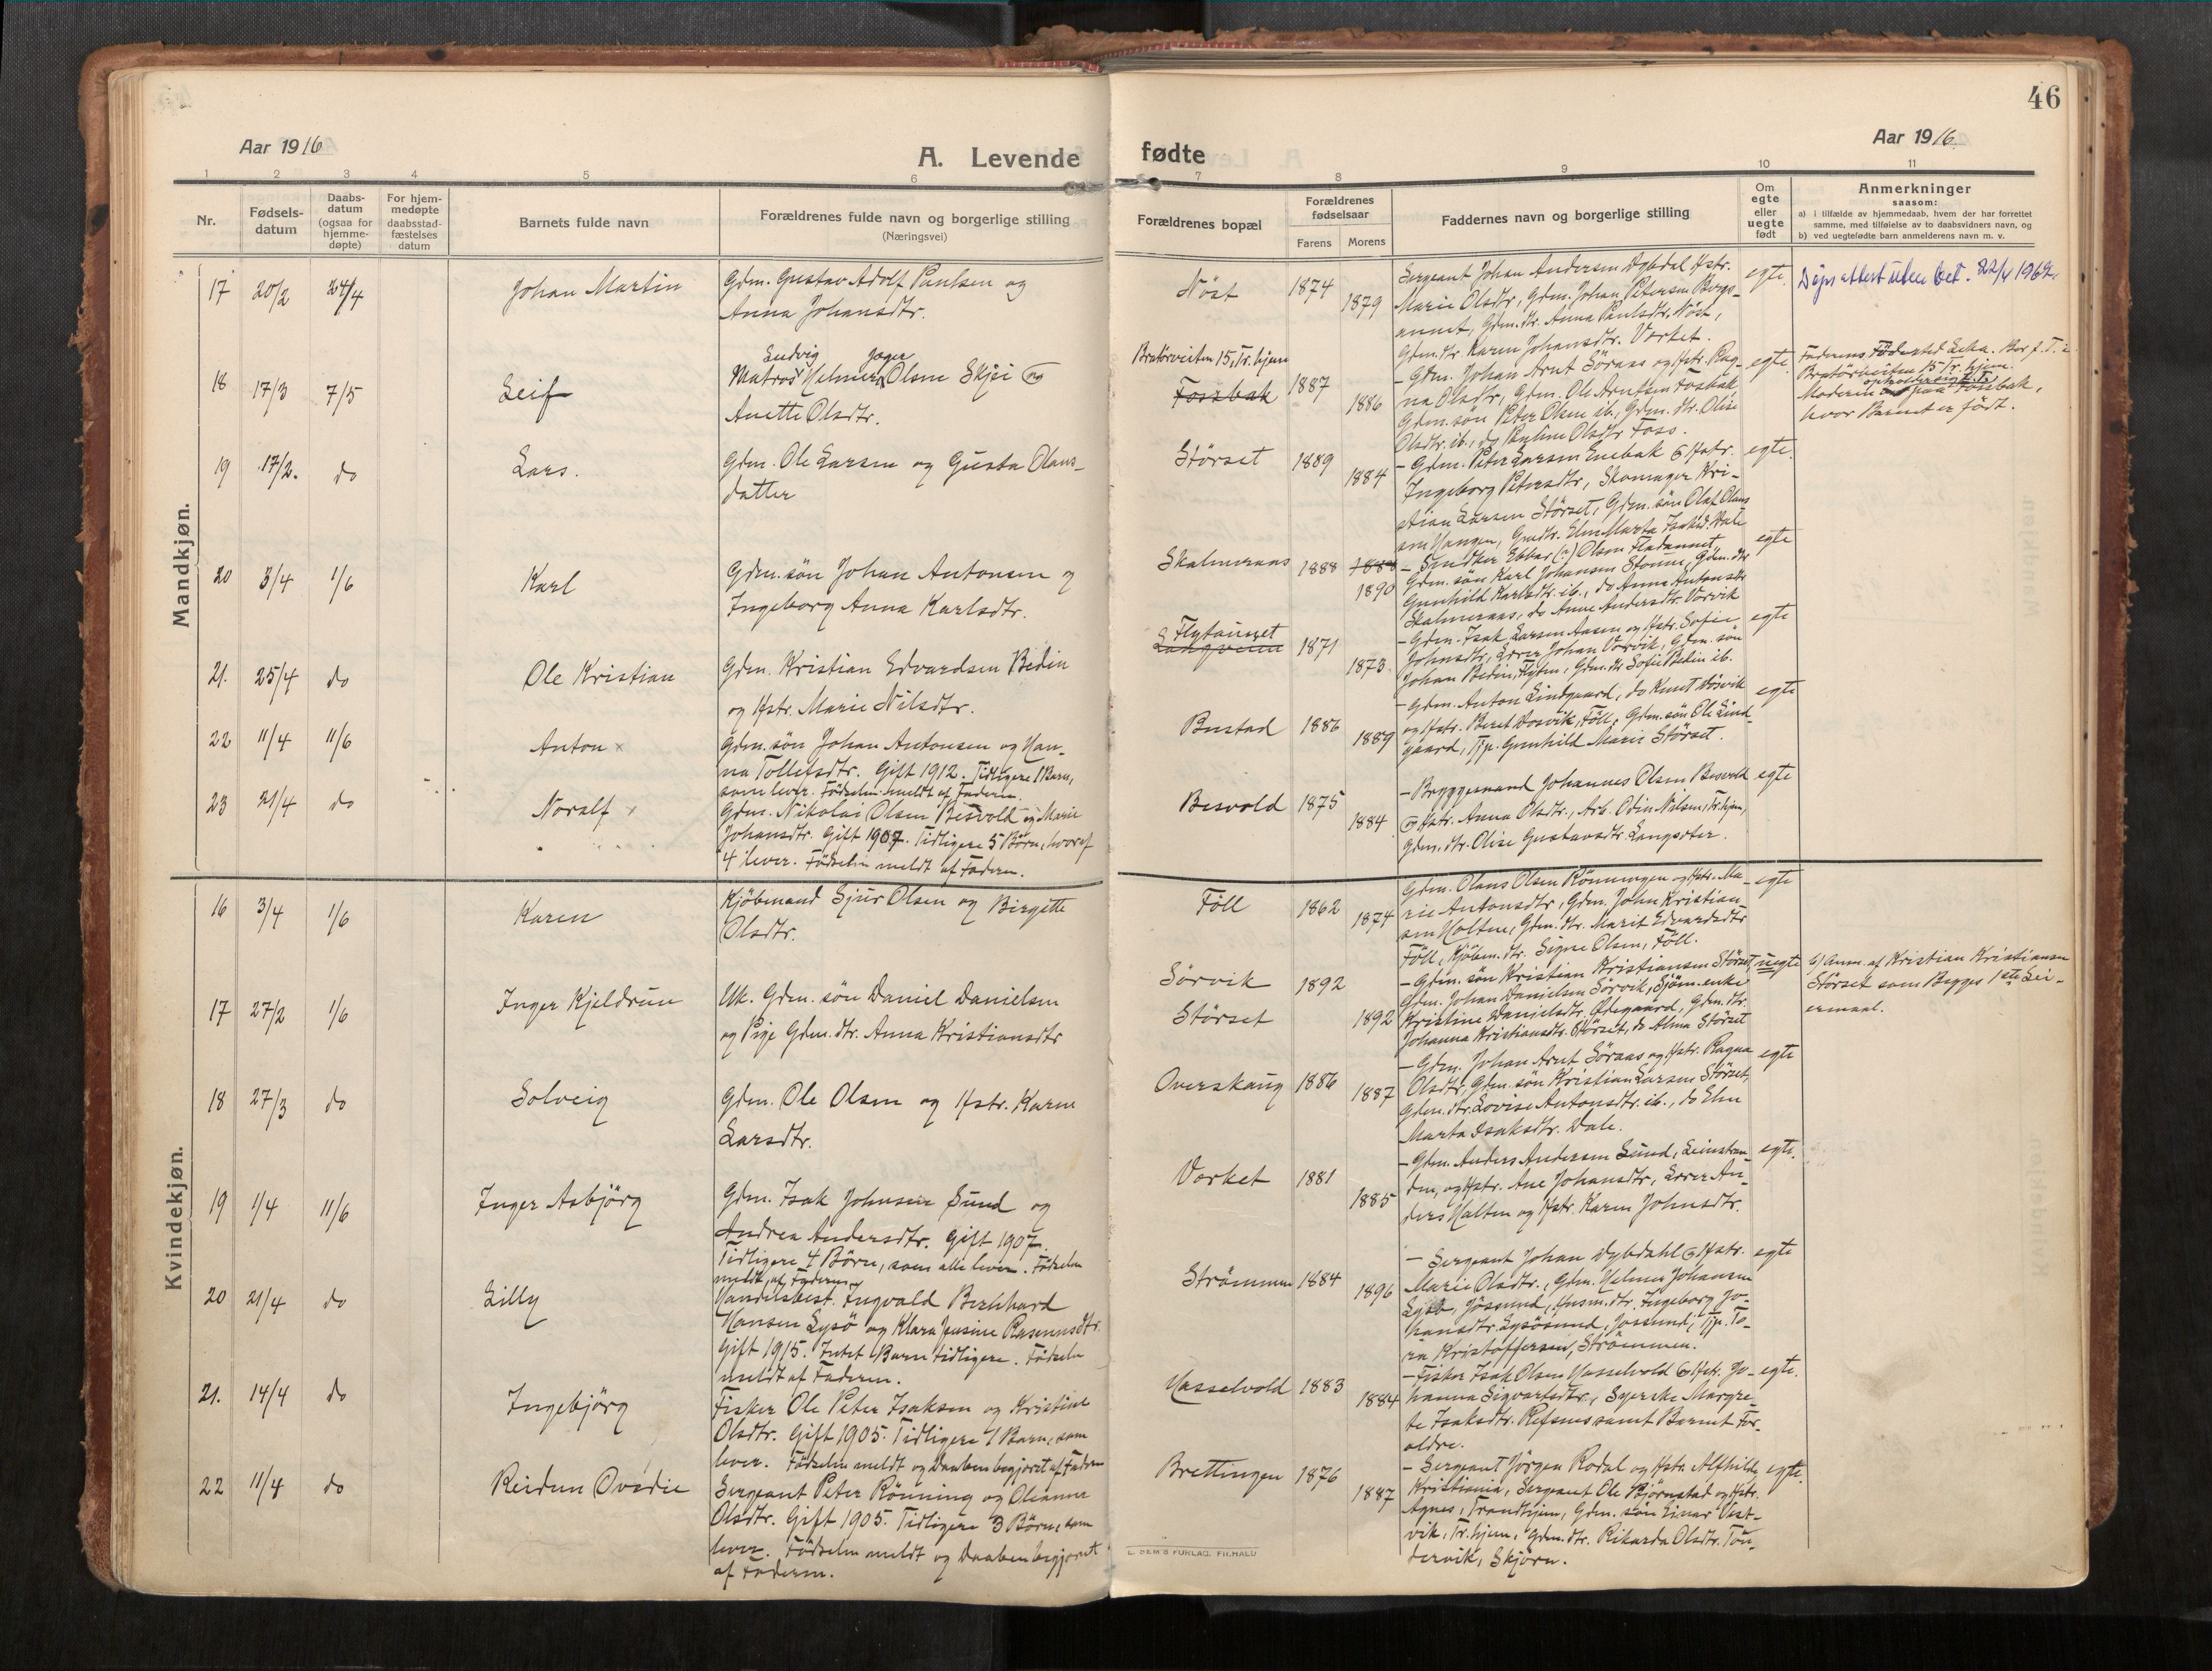 46
Aar 1916
A. Levende
fødte
Aar 1916
1 2 3 4 5 6 7 8 9 10 11
Nr.
Fødsels-
datum
Daabs-
datum
(ogsaa for
hjemme-
døpte)
For hjem-
medøpte
daabsstad-
fæstelses
datum
Barnets fulde navn
Forældrenes fulde navn og borgerlige stilling
(Næringsvei)
Forældrenes bopæl
Forældrenes
fødselsaar
Farens
Morens
Faddernes navn og borgerlige stilling
Om
egte
eller
uegte
født
Anmerkninger
saasom:
a) i tilfælde av hjemmedaab, hvem der har forrettet
samme, med tilføielse av to daabsvidners navn, og
b) ved uegtefødte barn anmelderens navn m. v.
Mandkjøn.
17 20/2 24/4
Johan Martin
Gdm. Gustav Adolf Paulsen og
Anna Johansdtr.
Nöst
1874
1879
Sergeant Johan Andersen Dybdal Hstr.
Marie Olsdtr, Gdm. Johan Petersen Borgs-
aunet, Gdm. dtr. Anna Paulsdtr. Nöst,
Gdm. dtr Karen Johansdtr. Vorket.
egte.
Döpsattest uten bet. 22/4 1962.
18 17/3 7/5
Leif
Ludvig Jæger
Matros Helmer Olsen Skjei og
Anette Olsdtr.
Bratörveiten 15, Tr.hjem
Fossbak
1887
1886
- Gdm. Johan Arnt Söraas og Hstr. Rag-
na Olsdtr, Gdm. Ole Arntsen Fosbak
Gdm. sön Peter Olsen ib., Gdm. dtr. Olise
Olsdtr. ib., do Pauline Olsdtr Foss.
egte
Faderens Födested Leka. Bor f. T. i
Bratörveiten 15 Tr.hjem.
opholder sig f. T.
Moderen paa Fosbak,
hvor Barnet er födt.
19 17/2. do
Lars.
Gdm. Ole Larsen og Gusta Olaus-
datter
Störset
1889
1884
- Gdm. Peter Larsen Enebak & Hstr.
Ingeborg Petersdtr, Skomager Kri-
stian Larsen Störset, Gdm. sön Olaf Olaus
sen Hangen, Gmdtr. Elen Marta Isaksd. Dale
egte.
20 3/4 1/6
Karl
Gdm. sön Johan Antonsen og
Ingeborg Anna Karlsdtr.
Skalmeraas
1888
1890
- Snedker Ebbar (?) Olsen Fladaunet,
Gdm. sön Karl Johansen Stoune, Gdm. dtr
Gunhild Karlsdtr. ib., do Anna Antonsdtr
Skalmeraas, do Anne Andersdtr. Vorvik
egte
21. 25/4 do
Ole Kristian
Gdm. Kristian Edvardsen Bedin
og Hstr. Marie Nilsdtr.
Flytaunet
1871
1873.
- Gdm. Isak Larsen Aasen og Hstr. Sofie
Johnsdtr, Lærer Johan Vorvik, Gdm. sön
Johan Bedin, Flyten, Gdm. dtr Sofie Bedin ib.
egte
22 11/4 11/6
Anton x
Gdm. sön Johan Antonsen og Han-
na Tollefsdtr. Gift 1912. Tidligere 1 Barn,
som lever. Födselen meldt af Faderen.
Bustad
1886
1889
- Gdm. Anton Lindgaard, do Knut Dösvik
og Hstr. Beret Dosvik, Föll, Gdm. sön Ole Lind-
gaard, Tjp. Gunhild Marie Störset.
egte
23 21/4 do
Noralf x
Gdm. Nikolai Olsen Besvold og Marie
Johansdtr. Gift 1907. Tidligere 5 Börn, hvoraf
4 lever. Födselen meldt af Faderen.
Besvold
1875
1884
- Bryggemand Johannes Olsen Besvold
& Hstr. Anna Olsdtr., Arb. Odin Nilsen, Tr.hjem,
Gdm. dtr. Olise Gustavsdtr. Langsæter.
egte
Kvindekjøn.
16 3/4 1/6
Karen
Kjöbmand Sjur Olsen og Birgitte
Olsdtr.
Föll
1862
1874
Gdm. Olaus Olsen Rönningen og Hstr. Ma-
rie Antonsdtr, Gdm. John Kristian
sen Holten, Gdm. dtr. Marit Edvardsdtr
Föll, Kjöbm. dtr. Signe Olsen, Föll.
egte
17 27/2 1/6
Inger Kjeldrun
Uk. Gdm. sön Daniel Danielsen
og Pige Gdm. dtr. Anna Kristiansdtr
Sörvik
Störset
1892
1892
- Gdm. sön Kristian Kristiansen Störset,
Gdm. Johan Danielsen Sörvik, Sjöm. enke
Kristine Danielsdtr. Ødegaard, Gdm. dtr.
Johanna Kristiansdtr. Störset, do Alma Störset
uegte
b) Anm. af Kristian Kristiansen
Störset som Begges 1ste Lei-
ermaal.
18 27/3 do
Solveig
Gdm. Ole Olsen og Hstr. Karen
Larsdtr.
Overskaug
1886
1887
- Gdm. Johan Arnt Söraas og Hstr. Ragna
Olsdtr, Gdm. sön Kristian Larsen Störset,
Gdm. dtr. Lovise Antonsdtr. ib., do Elen
Marta Isaksdtr. Dale.
egte
19 1/4 11/6
Inger Asbjörg
Gdm. Isak Johnsen Sund og
Andrea Andersdtr. Gift 1907.
Tidligere 4 Börn, som alle lever. Födselen
meldt af Faderen.
Vorket
1881
1885
- Gdm. Anders Andersen Sund, Leinstran-
den, og Hstr. Ane Johansdtr, Lærer An-
ders Halten og Hstr. Karen Johnsdtr.
egte.
20 21/4 do
Lilly
Handelsbest. Ingvald Bernhard
Hansen Lysö og Klara Jusine Rasmusdtr.
Gift 1915. Intet Barn tidligere. Födselen
meldt af Faderen.
Strömmen
1884
1896
- Sergeant Johan Dybdahl & Hstr.
Marie Olsdtr., Gdm. Helmer Johansen
Lysö, Jössund, Husm. dtr. Ingeborg Jo-
hansdtr. Lysösund, Jossund, Tjp. To-
ra Kristoffersen, Strömmen.
egte
21. 14/4 do
Ingebjörg
Fisker Ole Peter Isaksen og Kristine
Olsdtr. Gift 1905. Tidligere 1 Barn, som
lever. Födselen meldt og Daaben begjæret af Faderen
Hasselvold
1883
1884
- Fisker Isak Olsen Hasselvold & Hstr. Jo-
hanna Sigvartsdtr., Syerske Margre-
te Isaksdtr. Refsnes samt Barnets For-
ældre.
egte.
22 11/4 do
Reidun Ovedie
Sergeant Peter Rönning og Oleanna
Olsdtr. Gift 1905. Tidligere 3 Börn, som
lever. Födselen meldt og Daaben begjæret
af Faderen.
Brettingen
1876
1887
- Sergeant Jörgen Rodal og Hstr. Alfhild,
Kristiania, Sergeant Ole Björnstad og Hstr.
Agnes, Trondhjem, Gdm. sön Einar Vest-
vik, Tr.hjem, Gdm. dtr. Rikarda Olsdtr. Ton-
dervik, Skjörn.
egte.
E. SEM'S FORLAG, FR.HALD